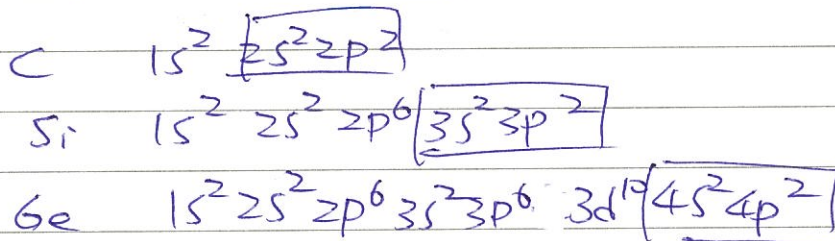 C 1s² 2s² 2p²
Si 1s² 2s² 2p⁶ 3s² 3p²
Ge 1s² 2s² 2p⁶ 3s² 3p⁶ 3d¹⁰ 4s² 4p²